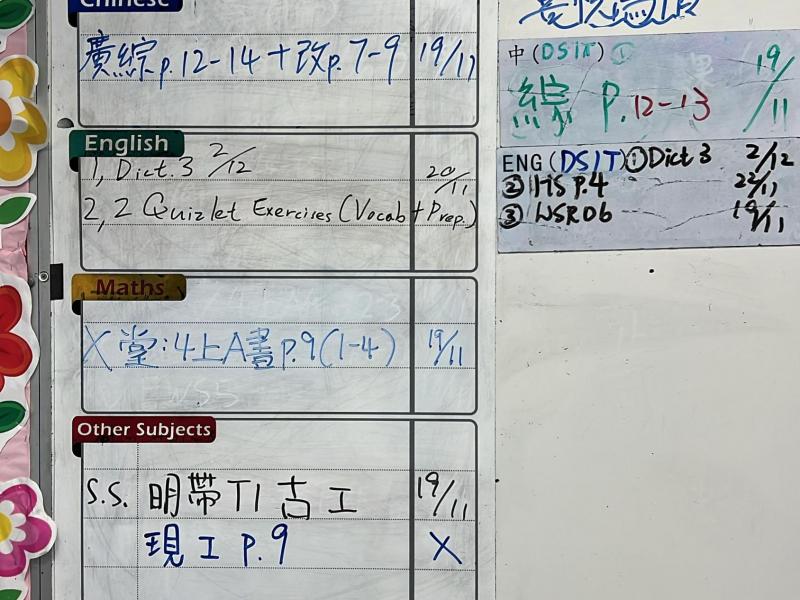 Chinese
廣綜p.12-14+改p.7-9 19/11
English
1, Dict.3 2/12 20/11
2, 2 Quizlet Exercises (Vocab + Prep.)
Maths
X 堂:4上A書p.9(1-4) 19/11
Other Subjects
S.S. 明帶T1古工 19/11
現工 p.9 X
中(DSIT)① 19/11
綜 P.12-13
ENG(DSIT)①Dict 3 2/12
② HS P.4 22/11
③ WSR06 19/11